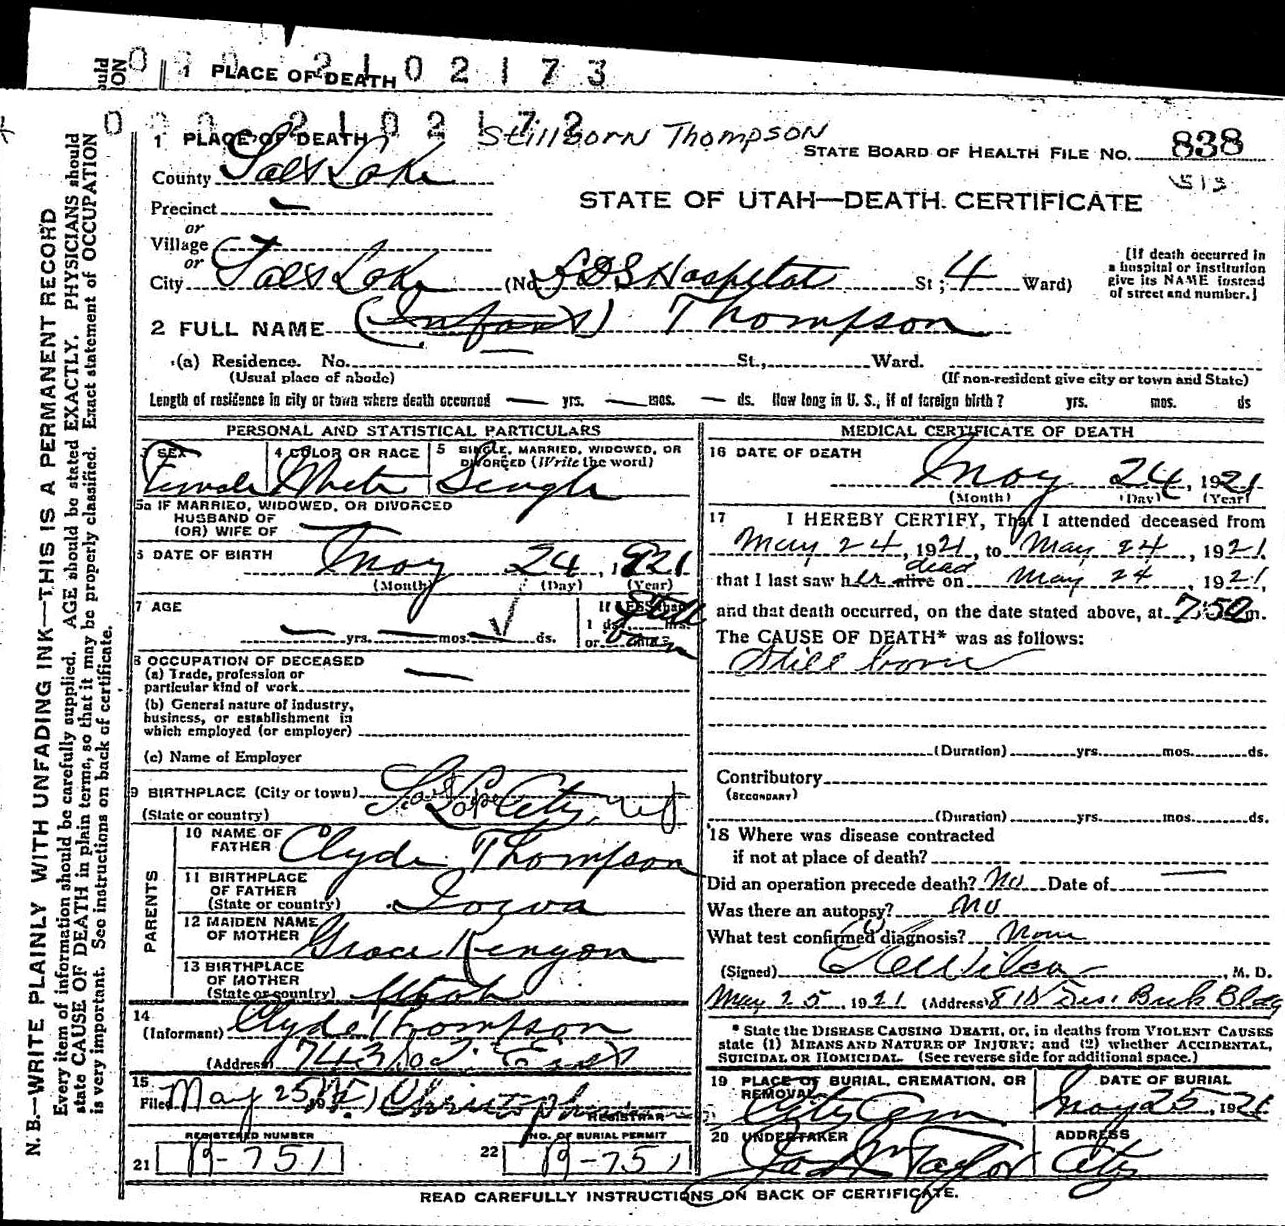 1 PLACE OF DEATH
0 0 0 2 1 0 2 1 7 3
0 0 0 2 1 0 2 1 7 2
1 PLACE OF DEATH
Stillborn Thompson
STATE BOARD OF HEALTH FILE NO. 838
County Salt Lake
513
Precinct —
STATE OF UTAH—DEATH CERTIFICATE
or
Village
or
City Salt Lake (No. LDS Hospital St; 4 Ward)
[If death occurred in a hospital or institution give its NAME instead of street and number.]
2 FULL NAME (Infant) Thompson
(a) Residence. No. St., Ward.
(Usual place of abode) (If non-resident give city or town and State)
Length of residence in city or town where death occurred — yrs. — mos. — ds. How long in U. S., if of foreign birth? yrs. mos. ds
PERSONAL AND STATISTICAL PARTICULARS
3 SEX Female
4 COLOR OR RACE White
5 SINGLE, MARRIED, WIDOWED, OR DIVORCED (Write the word) Single
5a IF MARRIED, WIDOWED, OR DIVORCED
HUSBAND OF
(OR) WIFE OF —
6 DATE OF BIRTH May 24, 1921
(Month) (Day) (Year)
7 AGE — yrs. — mos. ds.
If LESS than
1 day, hrs.
or min.
Still born
8 OCCUPATION OF DECEASED
(a) Trade, profession or
particular kind of work —
(b) General nature of industry,
business, or establishment in
which employed (or employer)
(c) Name of Employer
9 BIRTHPLACE (City or town) Salt Lake City, Ut
(State or country)
PARENTS
10 NAME OF FATHER Clyde Thompson
11 BIRTHPLACE OF FATHER (State or country) Iowa
12 MAIDEN NAME OF MOTHER Grace Kenyon
13 BIRTHPLACE OF MOTHER (State or country) Utah
14
(Informant) Clyde Thompson
(Address) 743 So. 2 East
15
Filed May 25 192
REGISTRAR
REGISTERED NUMBER
21 19-751
NO. OF BURIAL PERMIT
22 19-751
MEDICAL CERTIFICATE OF DEATH
16 DATE OF DEATH
May 24, 1921
(Month) (Day) (Year)
17 I HEREBY CERTIFY, That I attended deceased from
May 24, 1921, to May 24, 1921,
that I last saw her alive dead on May 24, 1921,
and that death occurred, on the date stated above, at 7:50 m.
The CAUSE OF DEATH* was as follows:
Still born
(Duration) yrs. mos. ds.
Contributory
(SECONDARY)
(Duration) yrs. mos. ds.
18 Where was disease contracted
if not at place of death?
Did an operation precede death? No Date of —
Was there an autopsy? No
What test confirmed diagnosis? None
(Signed) Wilcox, M. D.
May 25, 1921 (Address) Bldg
* State the DISEASE CAUSING DEATH, or, in deaths from VIOLENT CAUSES
state (1) MEANS AND NATURE OF INJURY; and (2) whether ACCIDENTAL,
SUICIDAL OR HOMICIDAL. (See reverse side for additional space.)
19 PLACE OF BURIAL, CREMATION, OR REMOVAL
City Cem
DATE OF BURIAL
May 25, 1921
20 UNDERTAKER
Taylor
ADDRESS
City
READ CAREFULLY INSTRUCTIONS ON BACK OF CERTIFICATE.
N. B.—WRITE PLAINLY WITH UNFADING INK—THIS IS A PERMANENT RECORD
Every item of information should be carefully supplied. AGE should be stated EXACTLY. PHYSICIANS should
state CAUSE OF DEATH in plain terms, so that it may be properly classified. Exact statement of OCCUPATION
is very important. See instructions on back of certificate.